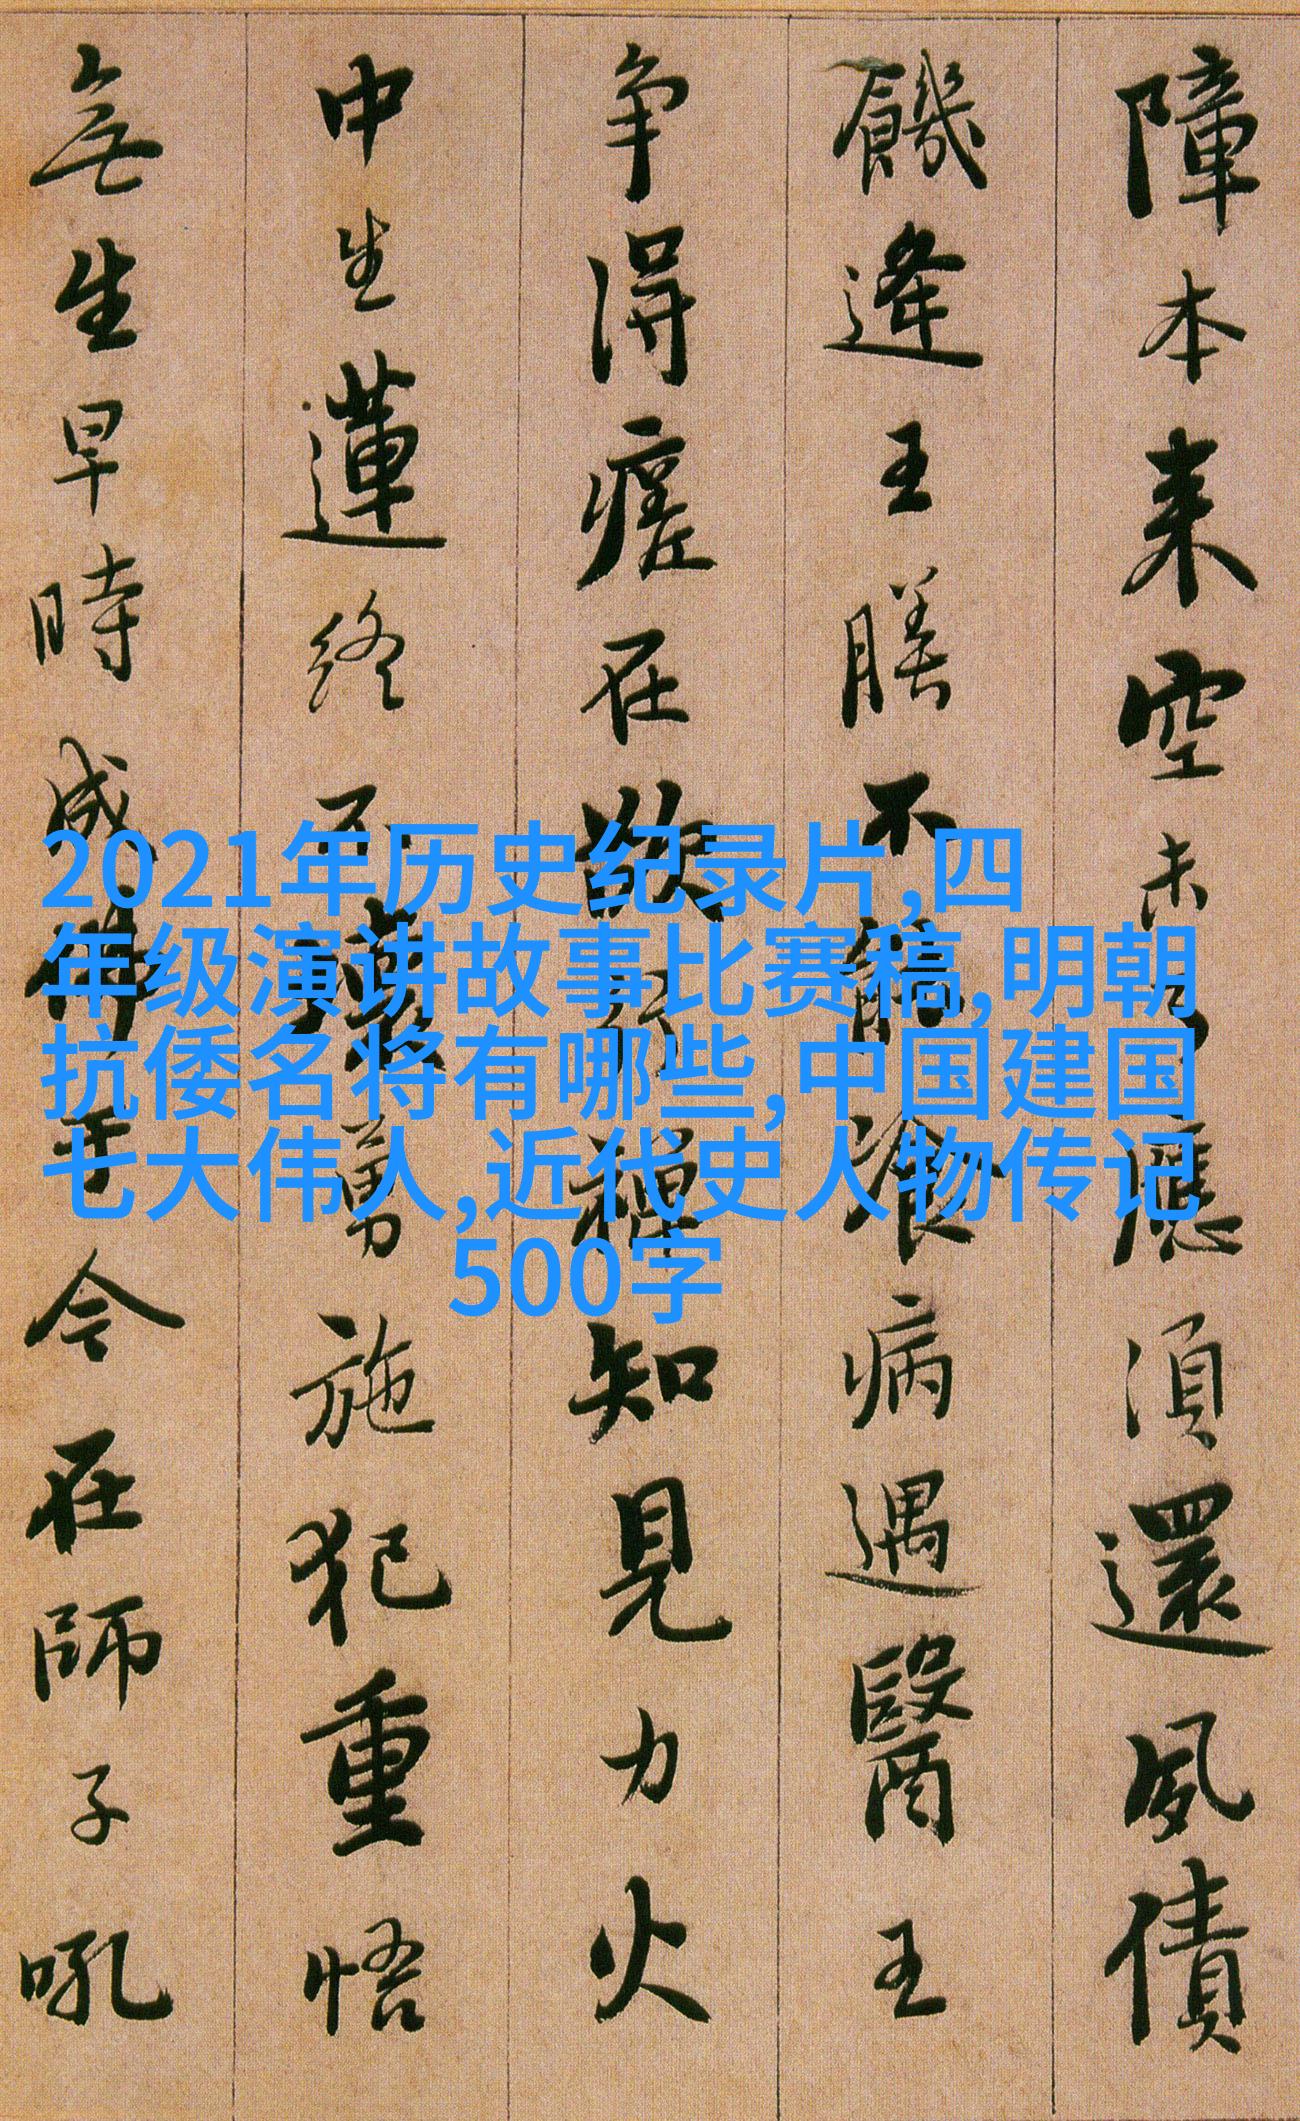 障本来空未了應湏還夙債
饑逢王膳不能飡病遇醫王
争得瘥在欲行禅知見力火
中生蓮終不壞勇施犯重悟
無生早時成佛于今在師子吼
2021年历史纪录片,四
年级演讲故事比赛稿,明朝
抗倭名将有哪些,中国建国
七大伟人,近代史人物传记
500字